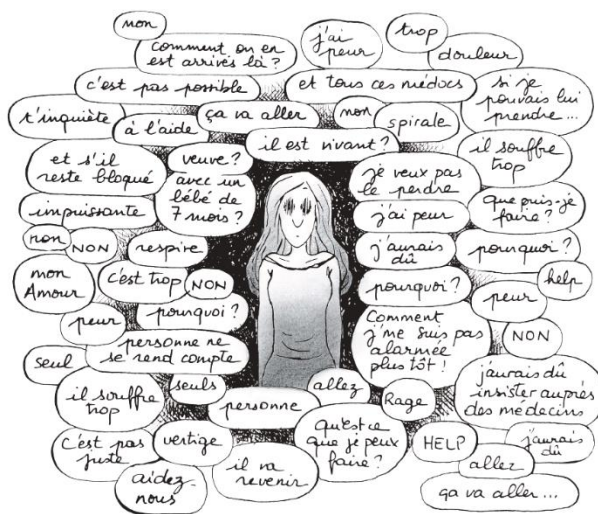 non
comment on en
est arrivés là ?
j'ai
peur
trop
douleur
c'est pas possible
et tous ces médocs
si je
pouvais lui
prendre...
t'inquiète
à l'aide
ça va aller
non
spirale
il est vivant ?
et s'il
reste bloqué
veuve ?
avec un
bébé de
7 mois ?
je veux pas
le perdre
il souffre
trop
impuissante
j'ai peur
que puis-je
faire ?
non
NON
respire
j'aurais
dû
pourquoi ?
mon
Amour
c'est trop
NON
pourquoi ?
peur
help
peur
pourquoi ?
Comment
j'me suis pas
alarmée
plus tôt !
NON
personne ne
se rend compte
seul
il souffre
trop
seuls
personne
allez
Rage
j'aurais dû
insister auprès
des médecins
c'est pas
juste
vertige
qu'est ce
que je peux
faire ?
HELP
j'aurais
dû
aidez-
nous
il va
revenir
allez
ça va aller...